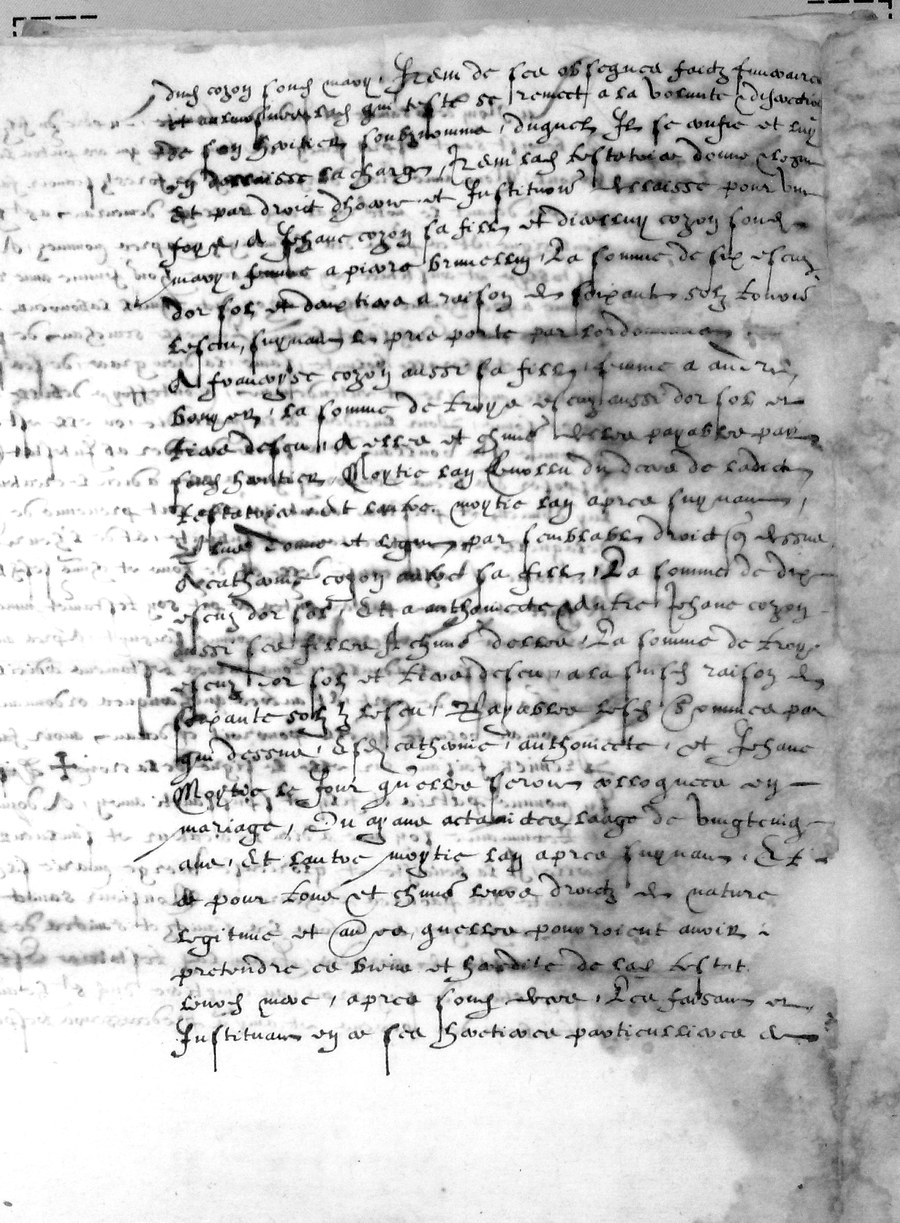 dud cozon soud mary, Item de ses obseques faictz funeraires
et aulmosnes lad qui teste se remect a la volunte discretion
de son heritier soubznomme, duquel Il se confie et luy
en dellaisse la charge, Item lad testatrice donne legue
Et par droit dhoirie et Institution dellaisse pour une
foys, A Jehane cozon sa fille et dicelluy cozon soud
mary, femme a pierre brunellin, La somme de six escuz
dor sol et deux tiers a raison de soixante solz tournois
lescu, suyvant le pris porte par lordonnance
A francoyse cozon aussi sa fille, femme a andre
boyer, la somme de troys escuz aussi dor sol et
tiers descu, A elles et chune delles payables par
soud heritier, Moytie lan revollu du deces de ladicte
testatrice Et lautre moytie lan apres suyvant,
Plus donne et legue par semblable droict q dessus
A catherine cozon aussi sa fille, La somme de dix
escuz dor sol, Et a anthoinette et autre Jehane cozon
aussi ses filles A chune delles, La somme de troys
escuz dor sol et tiers descu, a la susd raison de
soixante solz lescu, Payables lesd sommes par
qui dessus, Esd catherine, anthoinette, et Jehane
Moytie le Jour quelles seront colloquees en
mariage, Ou ayant actainctes laage de vingtcinq
ans, Et lautre moytie lan apres suyvant, Et
ce pour tous et chuns leurs droictz de nature
legitime et aues, quelles pouroient avoir
pretendre es biens et heredite de lad testat
leurd mere, apres soud deces, Les faisant et
Instituant en ce ses heretieres particullieres et